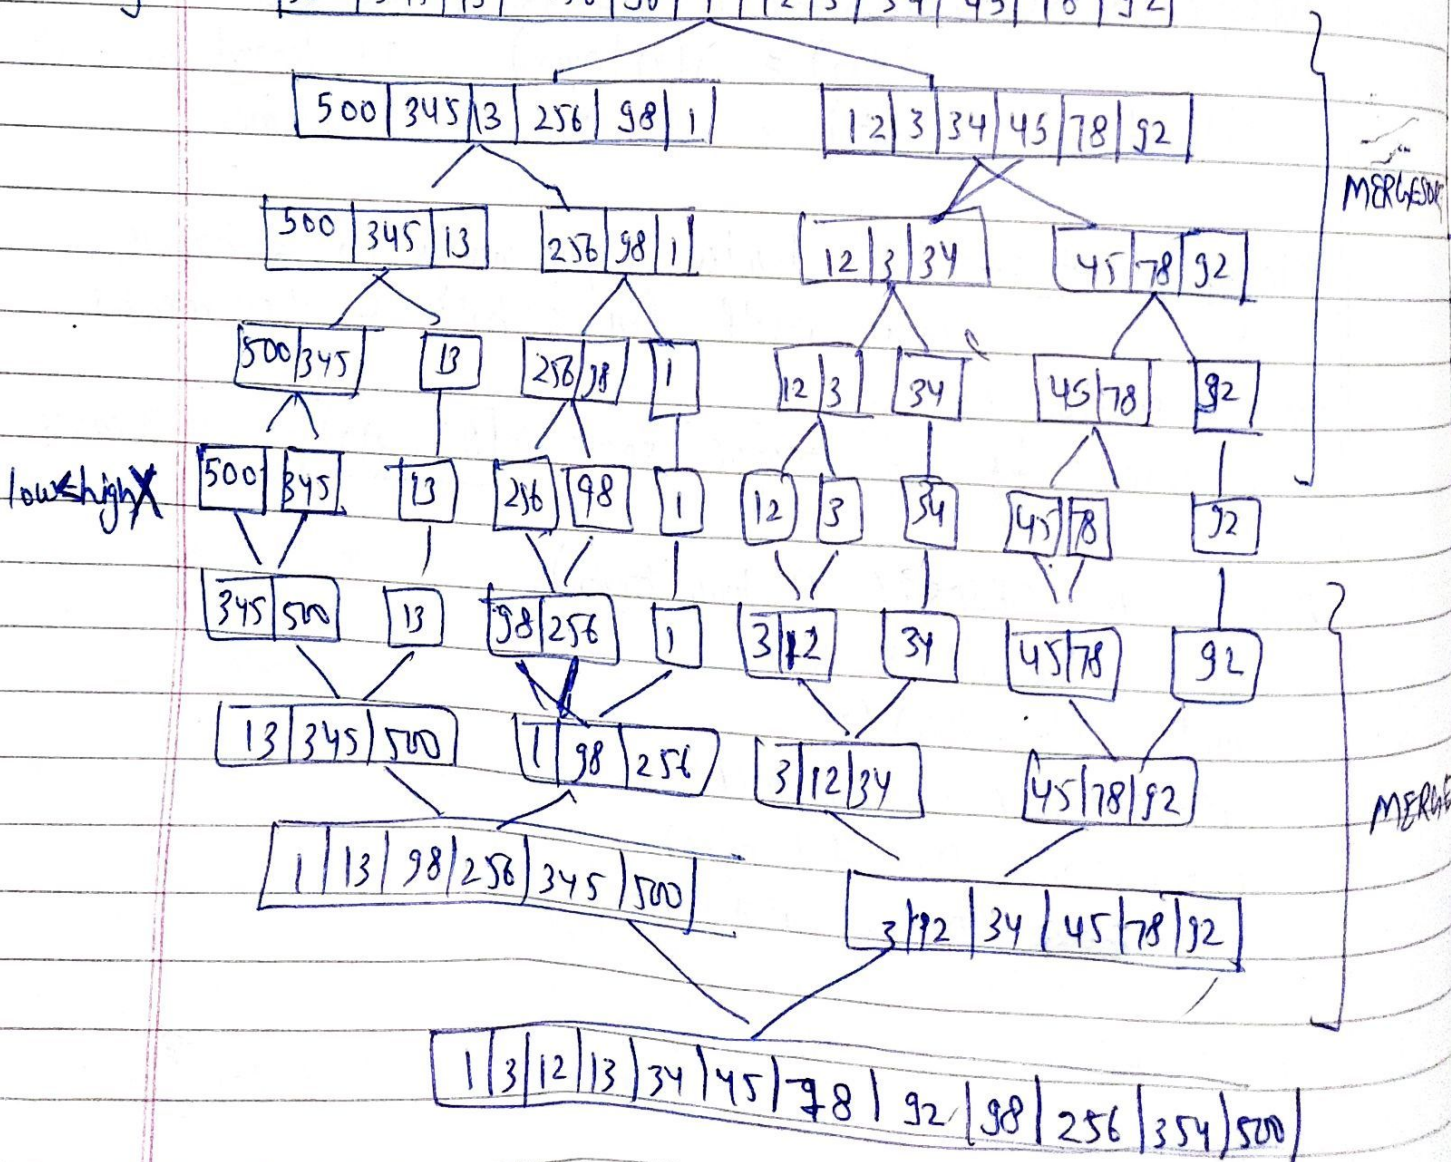 500 345 13 256 98 1 12 3 34 45 78 92
MERGESOR
500 345 13 256 98 1 12 3 34 45 78 92
500 345 13 256 98 1 12 3 34 45 78 92
low<high X 500 345 13 256 98 1 12 3 34 45 78 92
345 500 13 98 256 1 3 12 34 45 78 92
13 345 500 1 98 256 3 12 34 45 78 92
MERGE
1 13 98 256 345 500 3 12 34 45 78 92
1 3 12 13 34 45 78 92 98 256 354 500